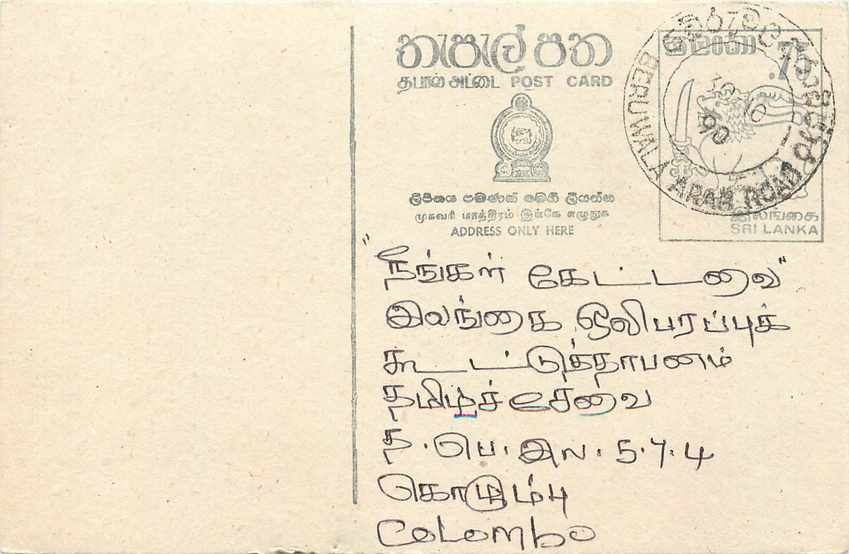 තැපැල් පත
தபால் அட்டை POST CARD
ලිපිනය පමණක් මෙහි ලියන්න
முகவரி மாத்திரம் இங்கே எழுதுக
ADDRESS ONLY HERE
BERUWALA ARAB ROAD
90
இலங்கை
SRI LANKA
"நீங்கள் கேட்டவை"
இலங்கை ஒலிபரப்புக்
கூட்டுத்தாபனம்
தமிழ்ச் சேவை
த.பெ.இல. 5.7.4
கொழும்பு
Colombo